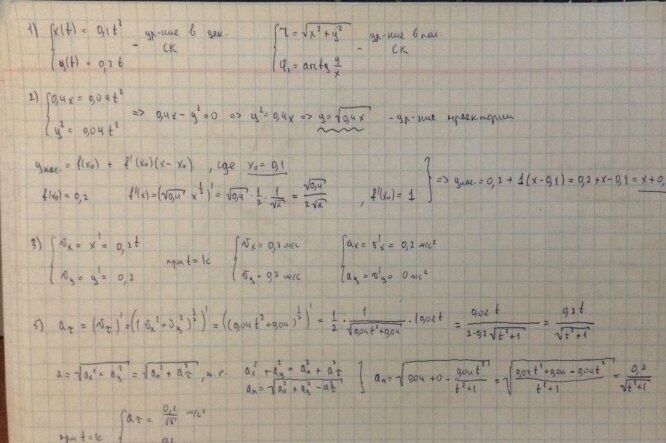 1) { x(t) = 0,1t² y(t) = 0,2t - ур-ние в дек. СК { r = √(x² + y²) φ₁ = arctg y/x - ур-ние в пол. СК
2) { 0,4x = 0,04t² y² = 0,04t² => 0,4x - y² = 0 => y² = 0,4x => y = √(0,4x) - ур-ние траектории
y кас. = f(x₀) + f'(x₀)(x - x₀), где x₀ = 0,1
f(x₀) = 0,2 f'(x) = (√0,4 x^(1/2))' = √0,4 · 1/2 · 1/√x = √0,4/(2√x), f'(x₀) = 1 } => y кас. = 0,2 + 1(x - 0,1) = 0,2 + x - 0,1 = x + 0,
3) { v_x = x' = 0,2t v_y = y' = 0,2 при t = 1с { v_x = 0,2 м/с v_y = 0,2 м/с { a_x = v'_x = 0,2 м/с² a_y = v'_y = 0 м/с²
5) a_τ = (v_τ)' = ((v_x² + v_y²)^(1/2))' = ((0,04t² + 0,04)^(1/2))' = 1/2 · 1/√(0,04t² + 0,04) · = 0,2t/√(t² + 1)
a = √(a_x² + a_y²) = √(a_n² + a_τ²), т.е. a_x² + a_y² = a_n² + a_τ² a_n = √(a_x² + a_y² - a_τ²) } a_n = √(0,04 + 0 - 0,04t²/(t² + 1)) = √((0,04t² + 0,04 - 0,04t²)/(t² + 1)) = 0,2/√(t² + 1)
при t = 1с { a_τ = м/с²